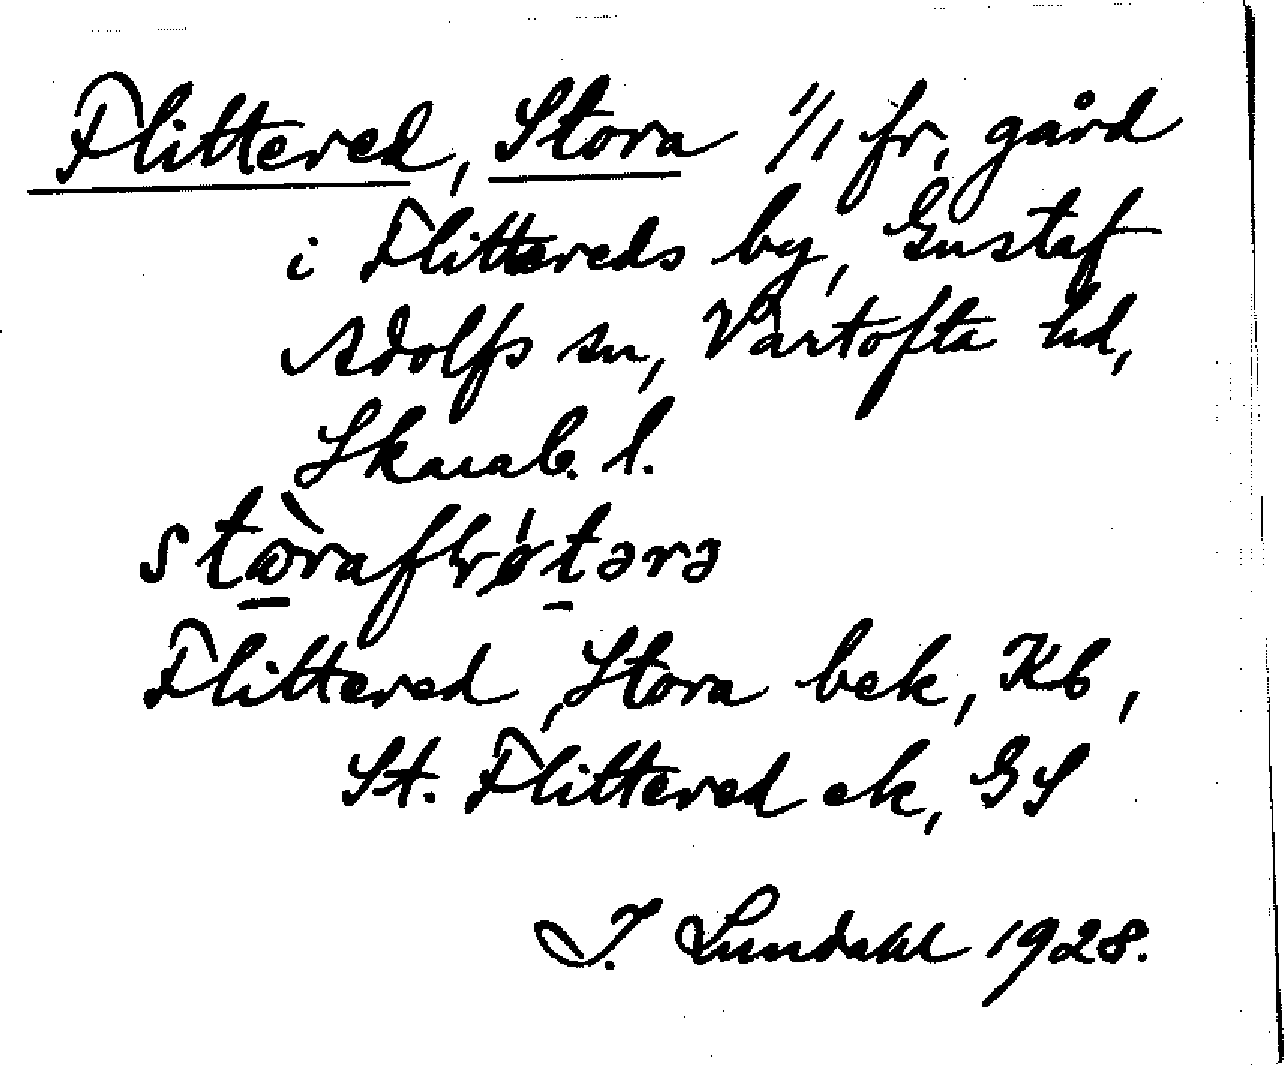 Flittered, Stora 1/1 fr, gård
i Flittereds by, Gustaf
Adolfs sn, Vartofta hd,
Skarab. l.
Flittered, Stora bek, Kb,
St. Flittered ek, GS
I. Lundahl 1928.